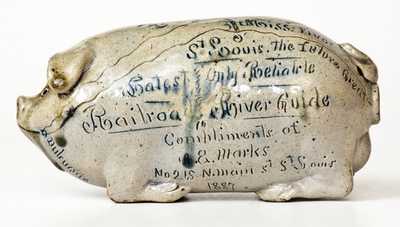 St Louis. The Future Great
Latest & Only Reliable
Railroad & River Guide
Compliments of
& Marks
No 215 N. main st St Louis
1887